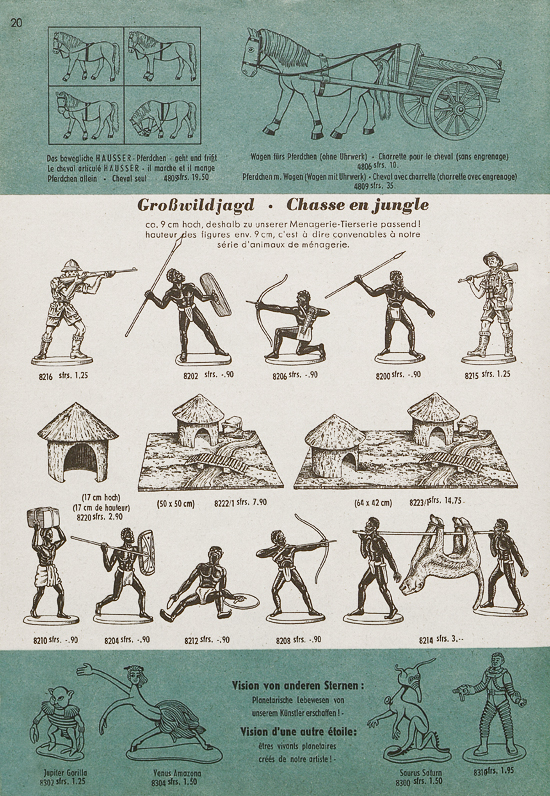 20
Das bewegliche HAUSSER - Pferdchen - geht und frißt
Le cheval articulé HAUSSER - il marche et il mange
Pferdchen allein - Cheval seul 4805 sfrs. 19.50
Wagen fürs Pferdchen (ohne Uhrwerk) - Charrette pour le cheval (sans engrenage)
4806 sfrs. 10.
Pferdchen m. Wagen (Wagen mit Uhrwerk) - Cheval avec charrette (charrette avec engrenage)
4809 sfrs. 35
Großwildjagd · Chasse en jungle
ca. 9 cm hoch, deshalb zu unserer Menagerie-Tierserie passend!
hauteur des figures env. 9 cm, c'est à dire convenables à notre
série d'animaux de ménagerie.
8216 sfrs. 1.25
8202 sfrs. -.90
8206 sfrs. -.90
8200 sfrs. -.90
8215 sfrs. 1.25
(17 cm hoch)
(17 cm de hauteur)
8220 sfrs. 2.90
(50 x 50 cm) 8222/1 sfrs. 7.90
(64 x 42 cm) 8223/1 sfrs. 14.75
8210 sfrs. -.90
8204 sfrs. -.90
8212 sfrs. -.90
8208 sfrs. -.90
8214 sfrs. 3.--
Vision von anderen Sternen:
Planetarische Lebewesen von
unserem Künstler erschaffen! -
Vision d'une autre étoile:
êtres vivants planetaires
créés de notre artiste! -
Jupiter Gorilla
8302 sfrs. 1.25
Venus Amazona
8304 sfrs. 1.50
Saurus Saturn
8300 sfrs. 1.50
sfrs. 1.95